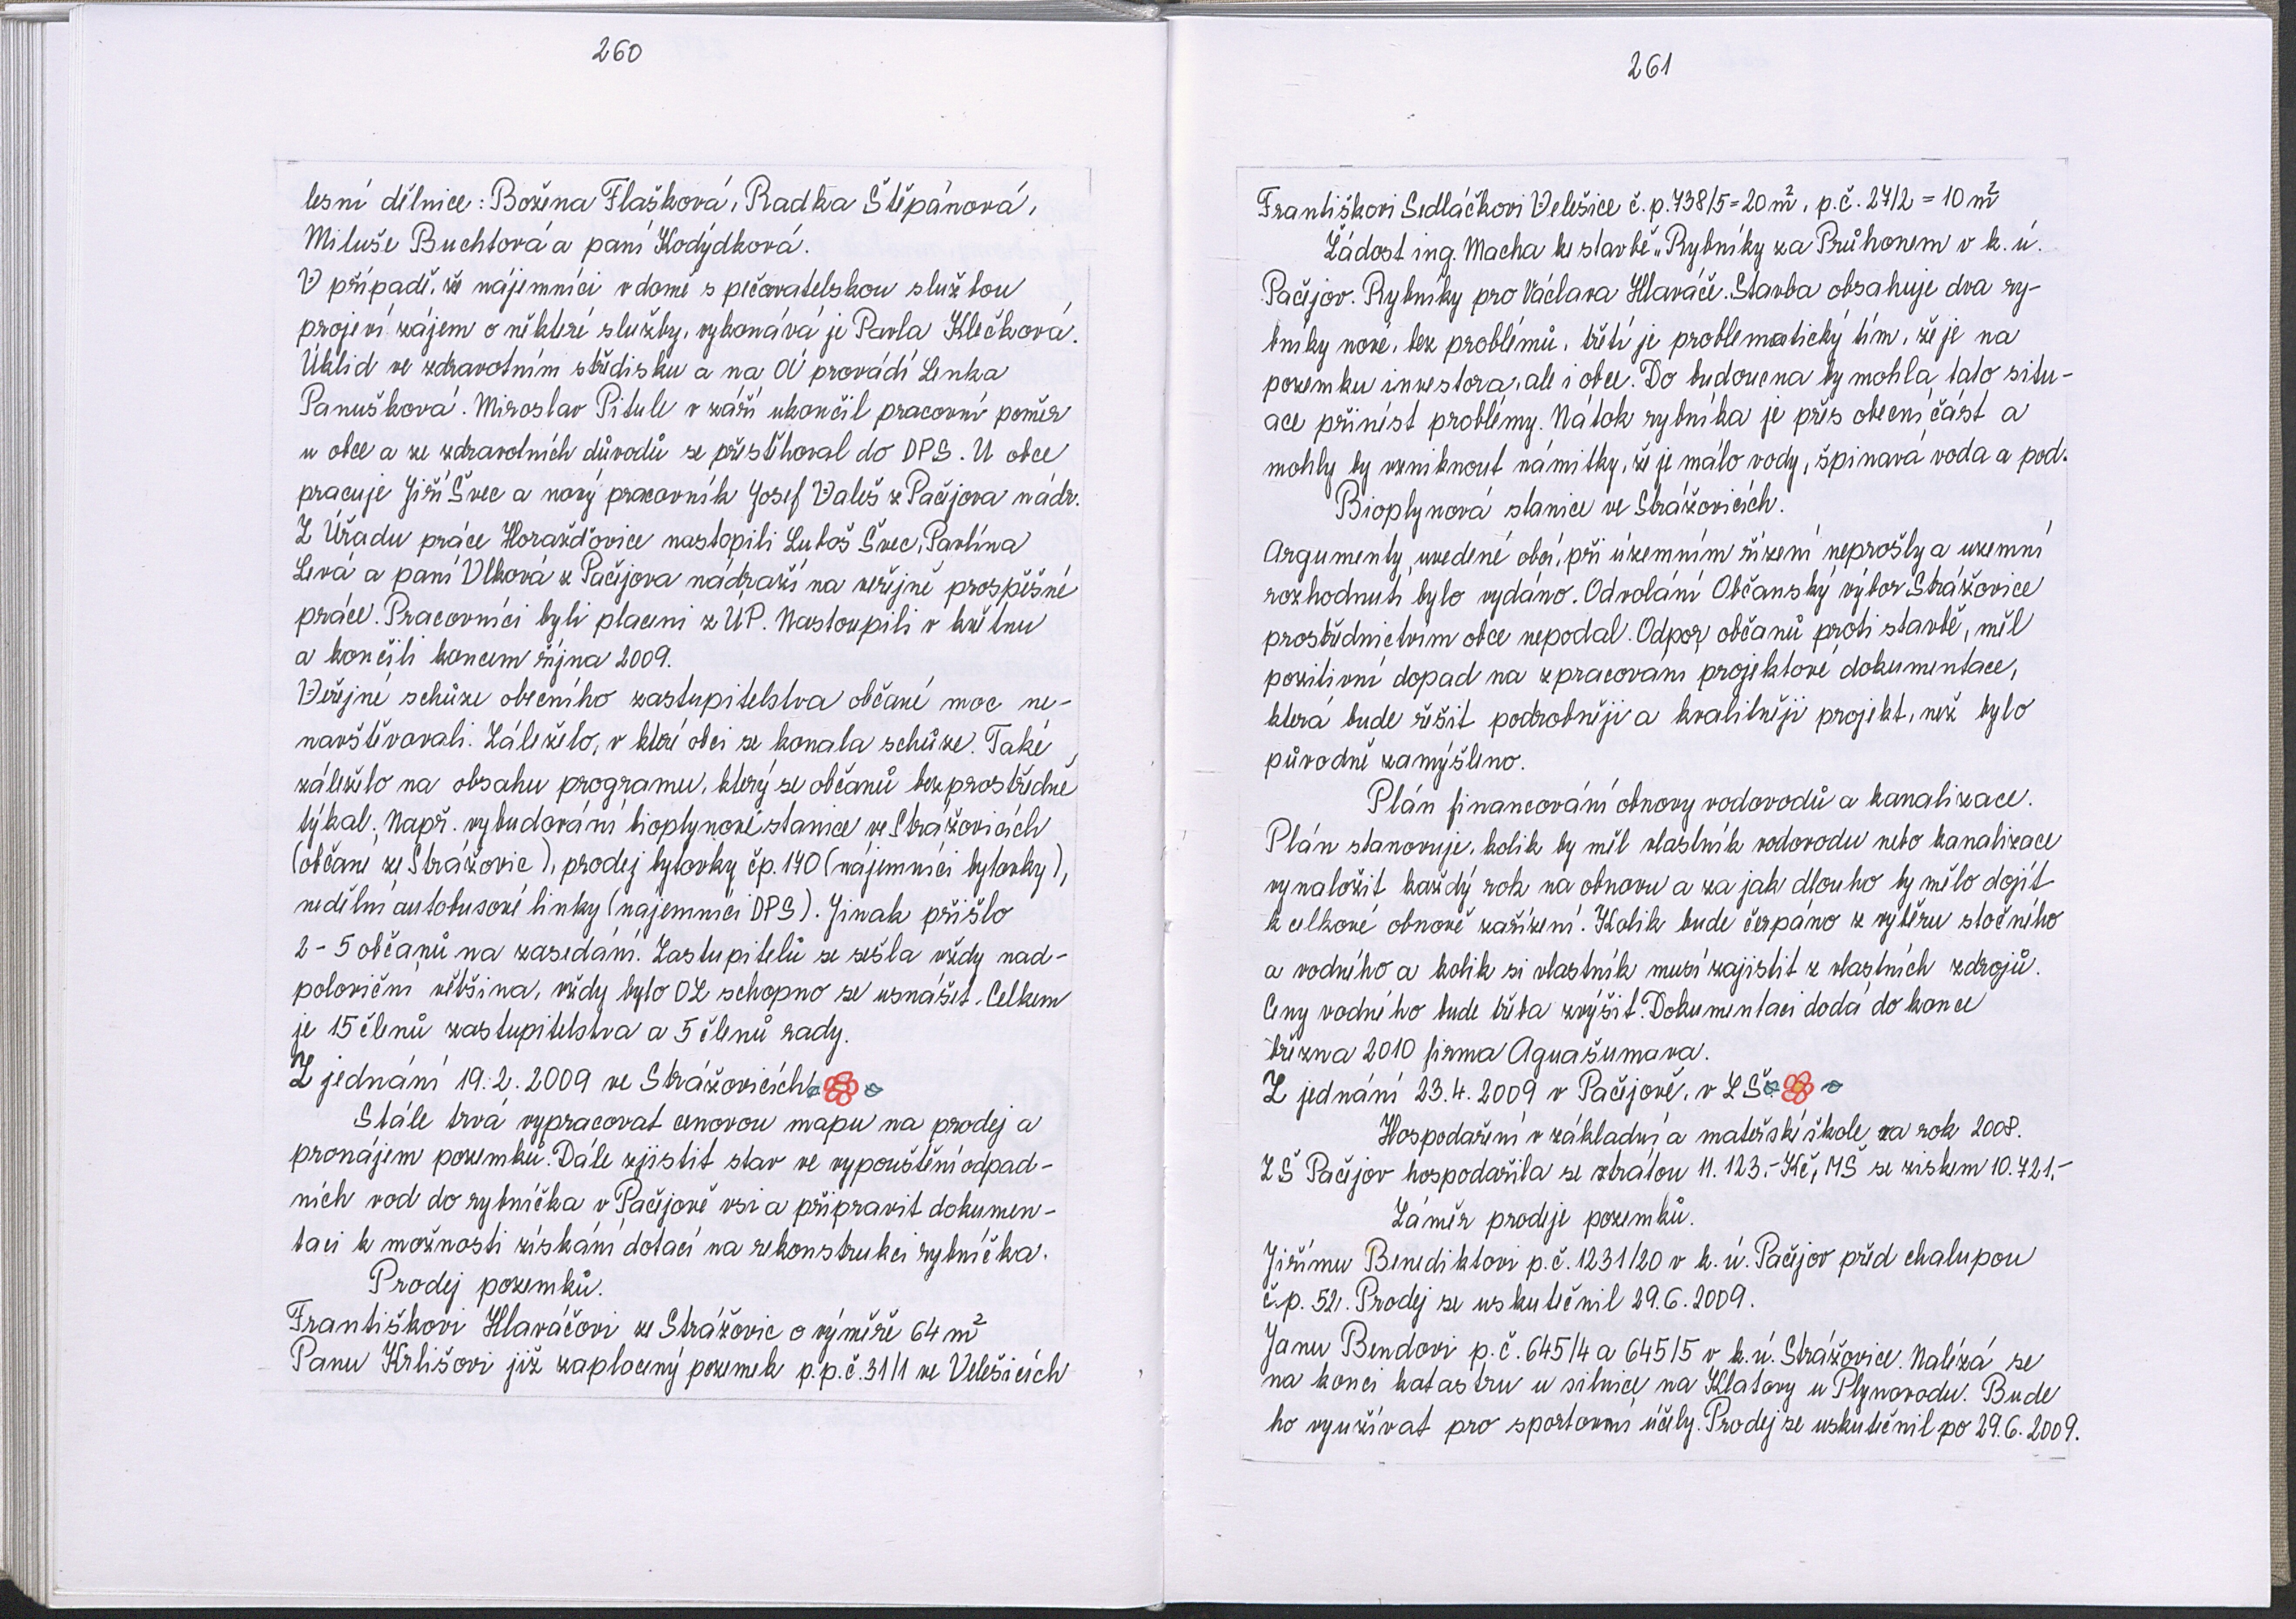 260
lesní dělnice: Božena Flašková, Radka Štěpánová,
Miluše Buchtová a paní Kodýdková.
V případě, že nájemníci v domě s pečovatelskou službou
projeví zájem o některé služby, vykonává je Pavla Klečková.
Úklid ve zdravotním středisku a na OÚ provádí Lenka
Panušková. Miroslav Pitule v září ukončil pracovní poměr
u obce a ze zdravotních důvodů se přestěhoval do DPS. U obce
pracuje Jiří Švec a nový pracovník Josef Valeš z Pačejova nádr.
Z Úřadu práce Horažďovice nastopili Luboš Švec, Pavlína
Levá a paní Vlková z Pačejova nádraží na veřejně prospěšné
práce. Pracovníci byli placeni z ÚP. Nastoupili v květnu
a končili koncem října 2009.
Veřejné schůze obecního zastupitelstva občané moc ne-
navštěvovali. Záleželo, v které obci se konala schůze. Také
záleželo na obsahu programu, který se občanů bezprostředně
týkal. Např. vybudování bioplynové stanice ve Strážovicích
(občané ze Strážovic), prodej bytovky čp. 140 (nájemníci bytovky),
nedělní autobusové linky (nájemníci DPS). Jinak přišlo
2-5 občanů na zasedání. Zastupitelů se sešla vždy nad-
poloviční většina, vždy bylo OZ schopno se usnášet. Celkem
je 15 členů zastupitelstva a 5 členů rady.
Z jednání 19.2.2009 ve Strážovicích
Stále trvá vypracovat cenovou mapu na prodej a
pronájem pozemků. Dále zjistit stav ve vypouštění odpad-
ních vod do rybníčka v Pačejově vsi a připravit dokumen-
taci k možnosti získání dotací na rekonstrukci rybníčka.
Prodej pozemků.
Františkovi Hlaváčovi ze Strážovic o výměře 64 m²
Panu Krlišovi již zaplacený pozemek p.p.č. 31/1 ve Velešicích
261
Františkovi Sedláčkovi Velešice č.p. 738/5 = 20 m², p.č. 27/2 = 10 m²
Žádost ing. Macha ke stavbě „Rybníky za Průhonem v k.ú.
Pačejov. Rybníky pro Václava Hlaváče. Stavba obsahuje dva ry-
bníky nové, bez problémů, třetí je problematický tím, že je na
pozemku investora, ale i obce. Do budoucna by mohla tato situ-
ace přinést problémy. Nátok rybníka je přes obecní část a
mohly by vzniknout námitky, že je málo vody, špinavá voda a pod.
Bioplynová stanice ve Strážovicích.
Argumenty, uvedené obcí, při územním řízení neprošly a uzemní
rozhodnutí bylo vydáno. Odvolání Občanský výbor Strážovice
prostřednictvím obce nepodal. Odpor občanů proti stavbě, měl
pozitivní dopad na zpracování projektové dokumentace,
která bude řešit podrobněji a kvalitněji projekt, než bylo
původně zamýšleno.
Plán financování obnovy vodovodů a kanalizace.
Plán stanovuje, kolik by měl vlastník vodovodu nebo kanalizace
vynaložit každý rok na obnovu a za jak dlouho by mělo dojít
k celkové obnově zařízení. Kolik bude čerpáno z výběru stočného
a vodného a kolik si vlastník musí zajistit z vlastních zdrojů.
Ceny vodného bude třeba zvýšit. Dokumentaci dodá do konce
března 2010 firma Aguašumava.
Z jednání 23.4.2009 v Pačejově, v ZŠ
Hospodaření v základní a mateřské škole za rok 2008.
ZŠ Pačejov hospodařila se ztrátou 11.123,- Kč, MŠ se ziskem 10.721,-
Záměr prodeje pozemků.
Jiřímu Benediktovi p.č. 1231/20 v k.ú. Pačejov před chalupou
č.p. 52. Prodej se uskutečnil 29.6.2009.
Janu Bendovi p.č. 645/4 a 645/5 v k.ú. Strážovice. Nalézá se
na konci katastru u silnice na Klatovy u Plynovodu. Bude
ho využívat pro sportovní účely. Prodej se uskutečnil po 29.6.2009.